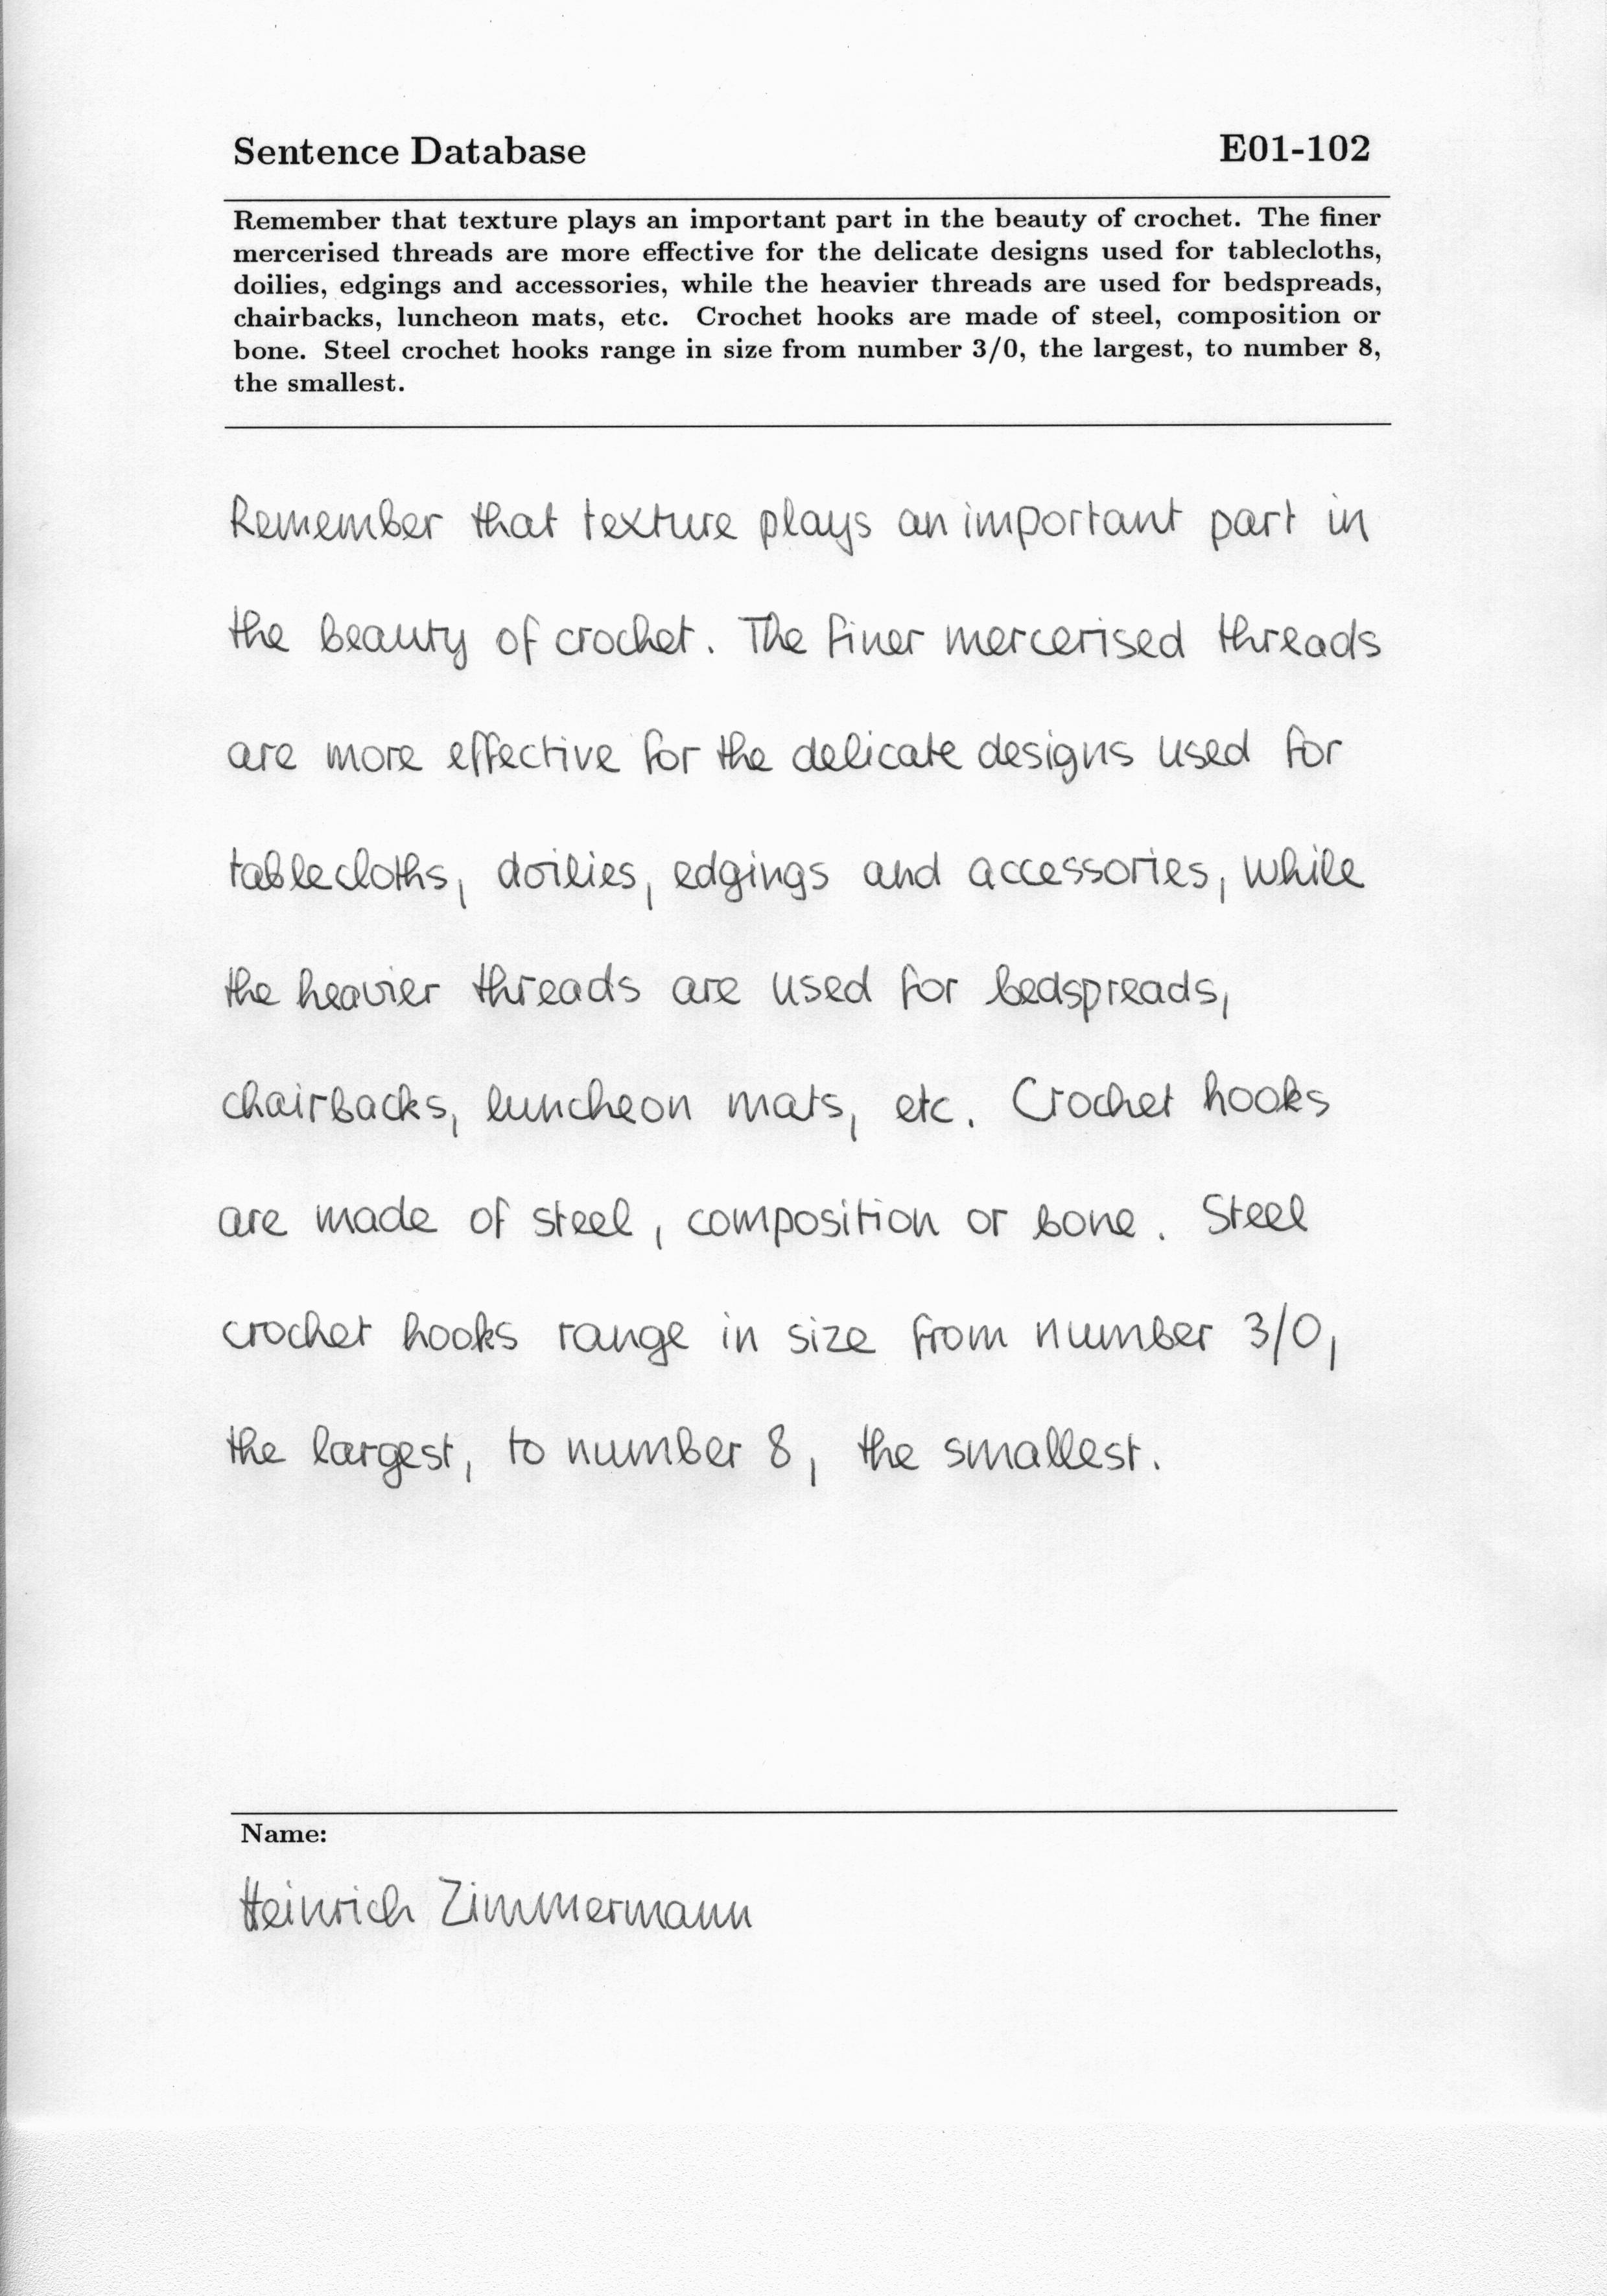 Sentence Database E01-102
Remember that texture plays an important part in the beauty of crochet. The finer
mercerised threads are more effective for the delicate designs used for tablecloths,
doilies, edgings and accessories, while the heavier threads are used for bedspreads,
chairbacks, luncheon mats, etc. Crochet hooks are made of steel, composition or
bone. Steel crochet hooks range in size from number 3/0, the largest, to number 8,
the smallest.
Remember that texture plays an important part in
the beauty of crochet. The finer mercerised threads
are more effective for the delicate designs used for
tablecloths, doilies, edgings and accessories, while
the heavier threads are used for bedspreads,
chairbacks, luncheon mats, etc. Crochet hooks
are made of steel, composition or bone. Steel
crochet hooks range in size from number 3/0,
the largest, to number 8, the smallest.
Name:
Heinrich Zimmermann